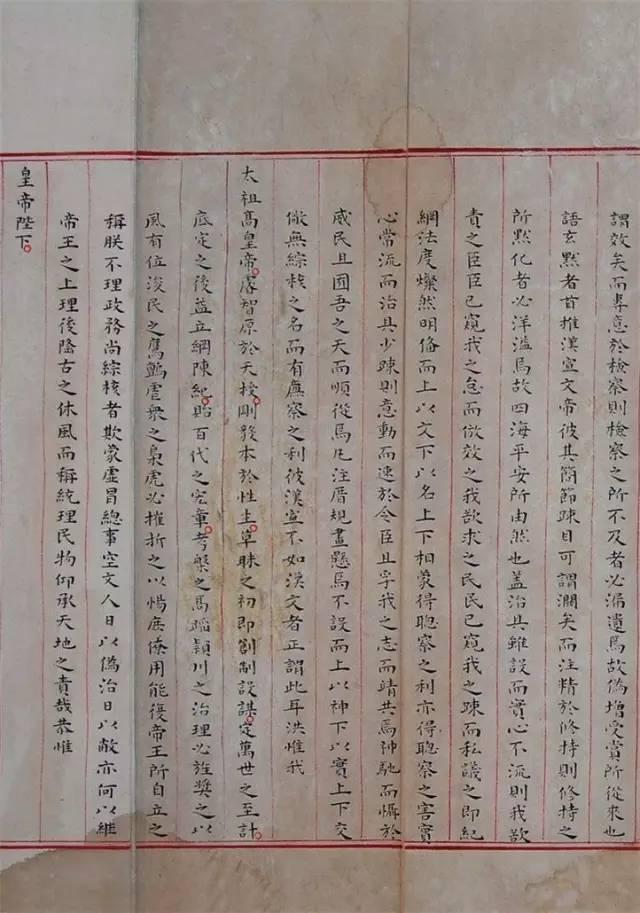 謂效矣而專意於檢察則檢察之所不及者必漏遺焉故偽增受賞所從來也
語玄默者首推漢宣文帝彼其簡節疎目可謂濶矣而注精於修持則修持之
所默化者必洋溢焉故四海平安所由然也蓋治具雖設而實心不流則我欲
責之臣臣已窺我之怠而倣效之我欲求之民民已窺我之疎而私議之即紀
綱法度燦然明備而上以文下以名上下相蒙得聰察之利亦得聰察之害實
心常流而治具少疎則意動而速於令臣且孚我之志而靖共焉神馳而懾於
威民且囿吾之天而順從焉凡注厝規畫懸焉不設而上以神下以實上下交
儆無綜核之名而有廉察之利彼漢宣不如漢文者正謂此耳洪惟我
太祖高皇帝。睿智原於天授。剛毅本於性生。草昧之初即創制設謀。定萬世之至計。
底定之後益立綱陳紀。貽百代之宏章。考槃之馬蹈潁川之治理必旌獎之以
風有位浚民之鷹鸇虐衆之梟虎必摧折之以惕庶僚用能復帝王所自立之
稱朕不理政務尚綜核者欺蒙虛冒總事空文人日以偽治日以敝亦何以繼
帝王之上理後隆古之休風而稱統理民物仰承天地之責哉恭惟
皇帝陛下。